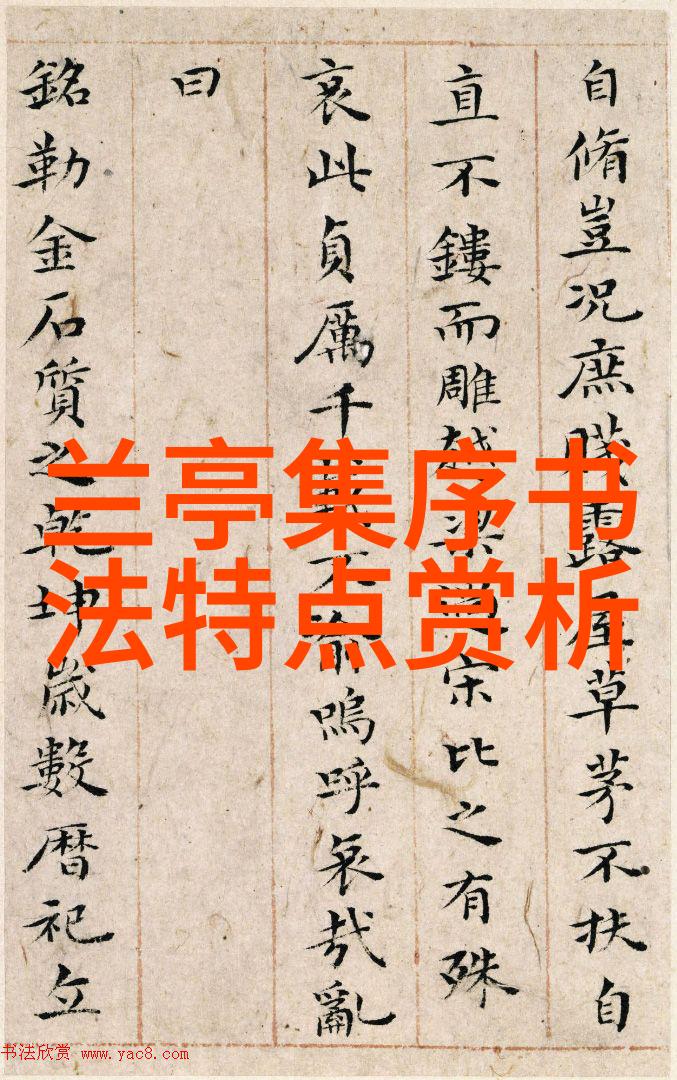 自脩豈況庶露屋草茅不扶自
直不鏤而雕越梁宋比之有殊
哀此貞厲千載不渝嗚呼哀哉亂
曰
銘勒金石質之乾坤歲數曆祀立
兰亭集序书
法特点赏析
书法欣赏 www.yac8.com